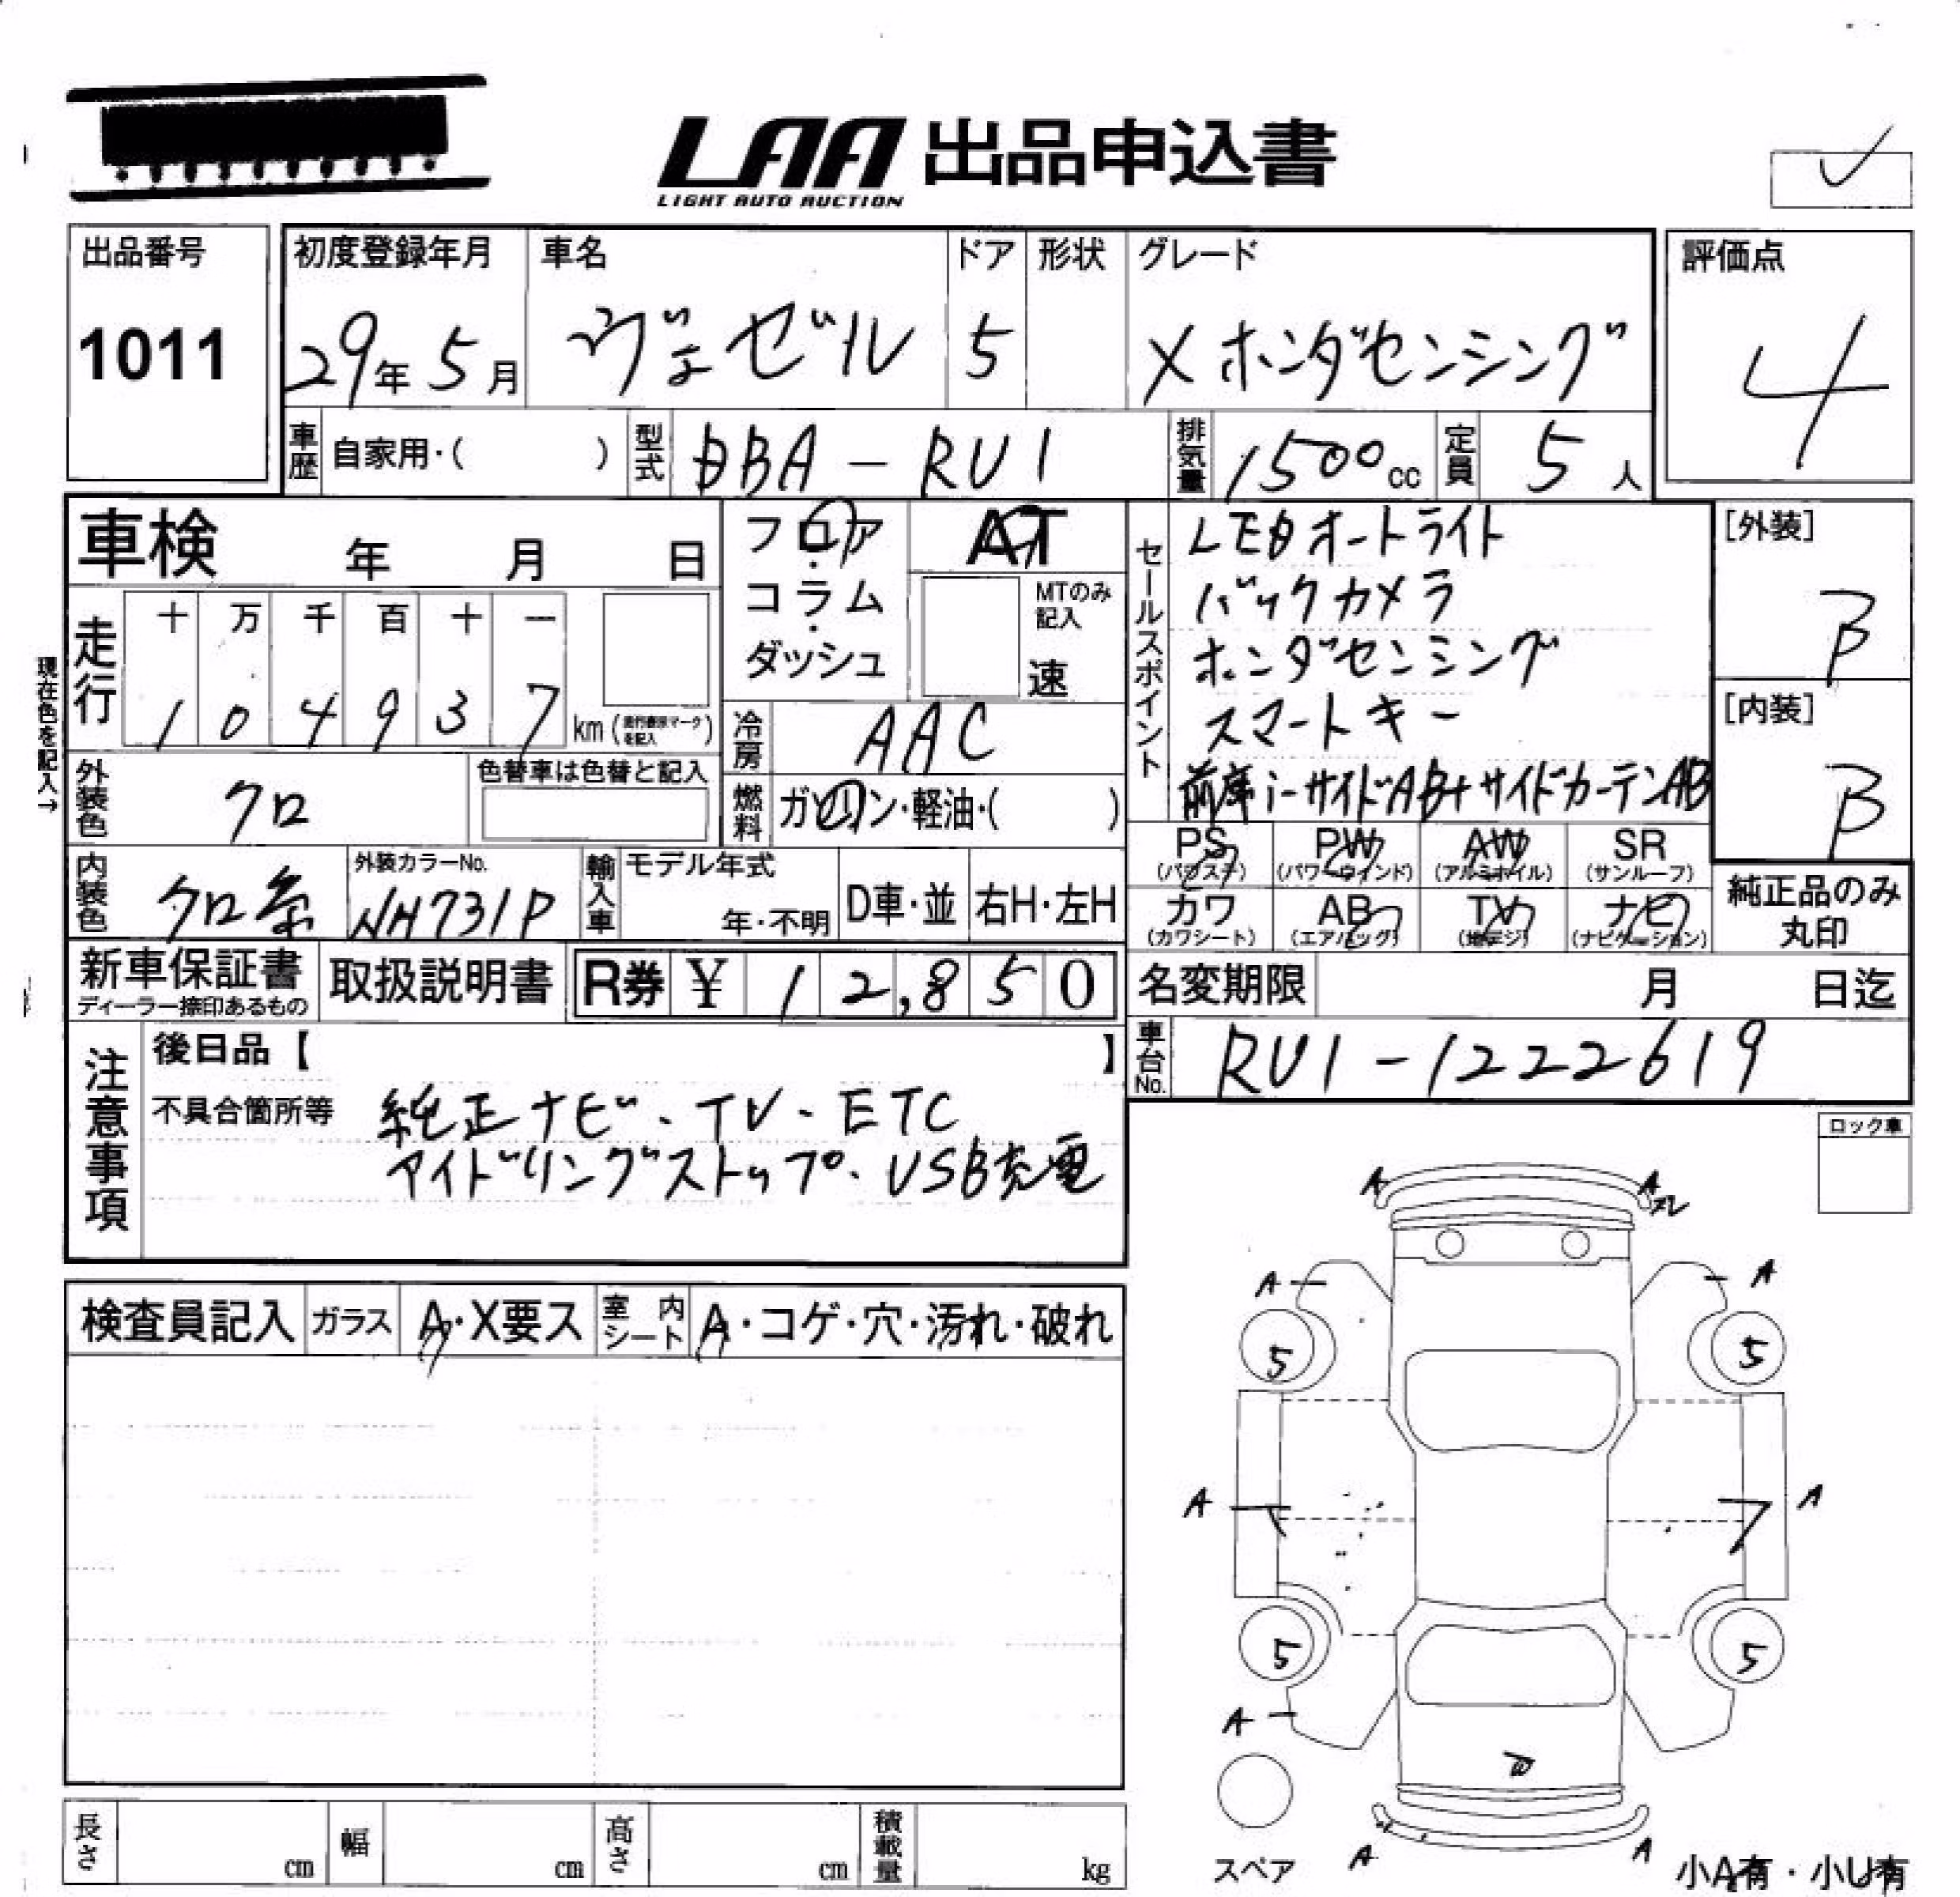 LAA 出品申込書
LIGHT AUTO AUCTION
出品番号
1011
初度登録年月
29年 5月
車名
ヴェゼル
ドア
5
形状
グレード
X ホンダセンシング
評価点
4
車歴 自家用・( )
型式 DBA-RU1
排気量 1500cc
定員 5人
車検 年 月 日
フロア・コラム・ダッシュ
AT
MTのみ記入
速
走行
十 万 千 百 十 一
1 0 4 9 3 7 km (走行表示マークを記入)
現在色を記入→
外装色 クロ
色替車は色替と記入
冷房 AAC
燃料 ガソリン・軽油・( )
セールスポイント
LEDオートライト
バックカメラ
ホンダセンシング
スマートキー
前席i-サイドAB+サイドカーテンAB
[外装]
B
[内装]
B
内装色 クロ系
外装カラーNo.
NH731P
輸入車 モデル年式
年・不明
D車・並
右H・左H
PS (パワステ)
PW (パワーウインド)
AW (アルミホイル)
SR (サンルーフ)
カワ (カワシート)
AB (エアバッグ)
TV (地デジ)
ナビ (ナビゲーション)
純正品のみ丸印
新車保証書
ディーラー捺印あるもの
取扱説明書
R券 ¥ 12,850
名変期限 月 日迄
車台No. RU1-1222619
注意事項
後日品【 】
不具合箇所等
純正ナビ・TV・ETC
アイドリングストップ・USB充電
ロック車
検査員記入
ガラス A・X要ス
室内シート A・コゲ・穴・汚れ・破れ
A A
ズレ
A A
5 5
A A
5 5
A
W
A A
スペア
小A有・小U有
長さ cm
幅 cm
高さ cm
積載量 kg